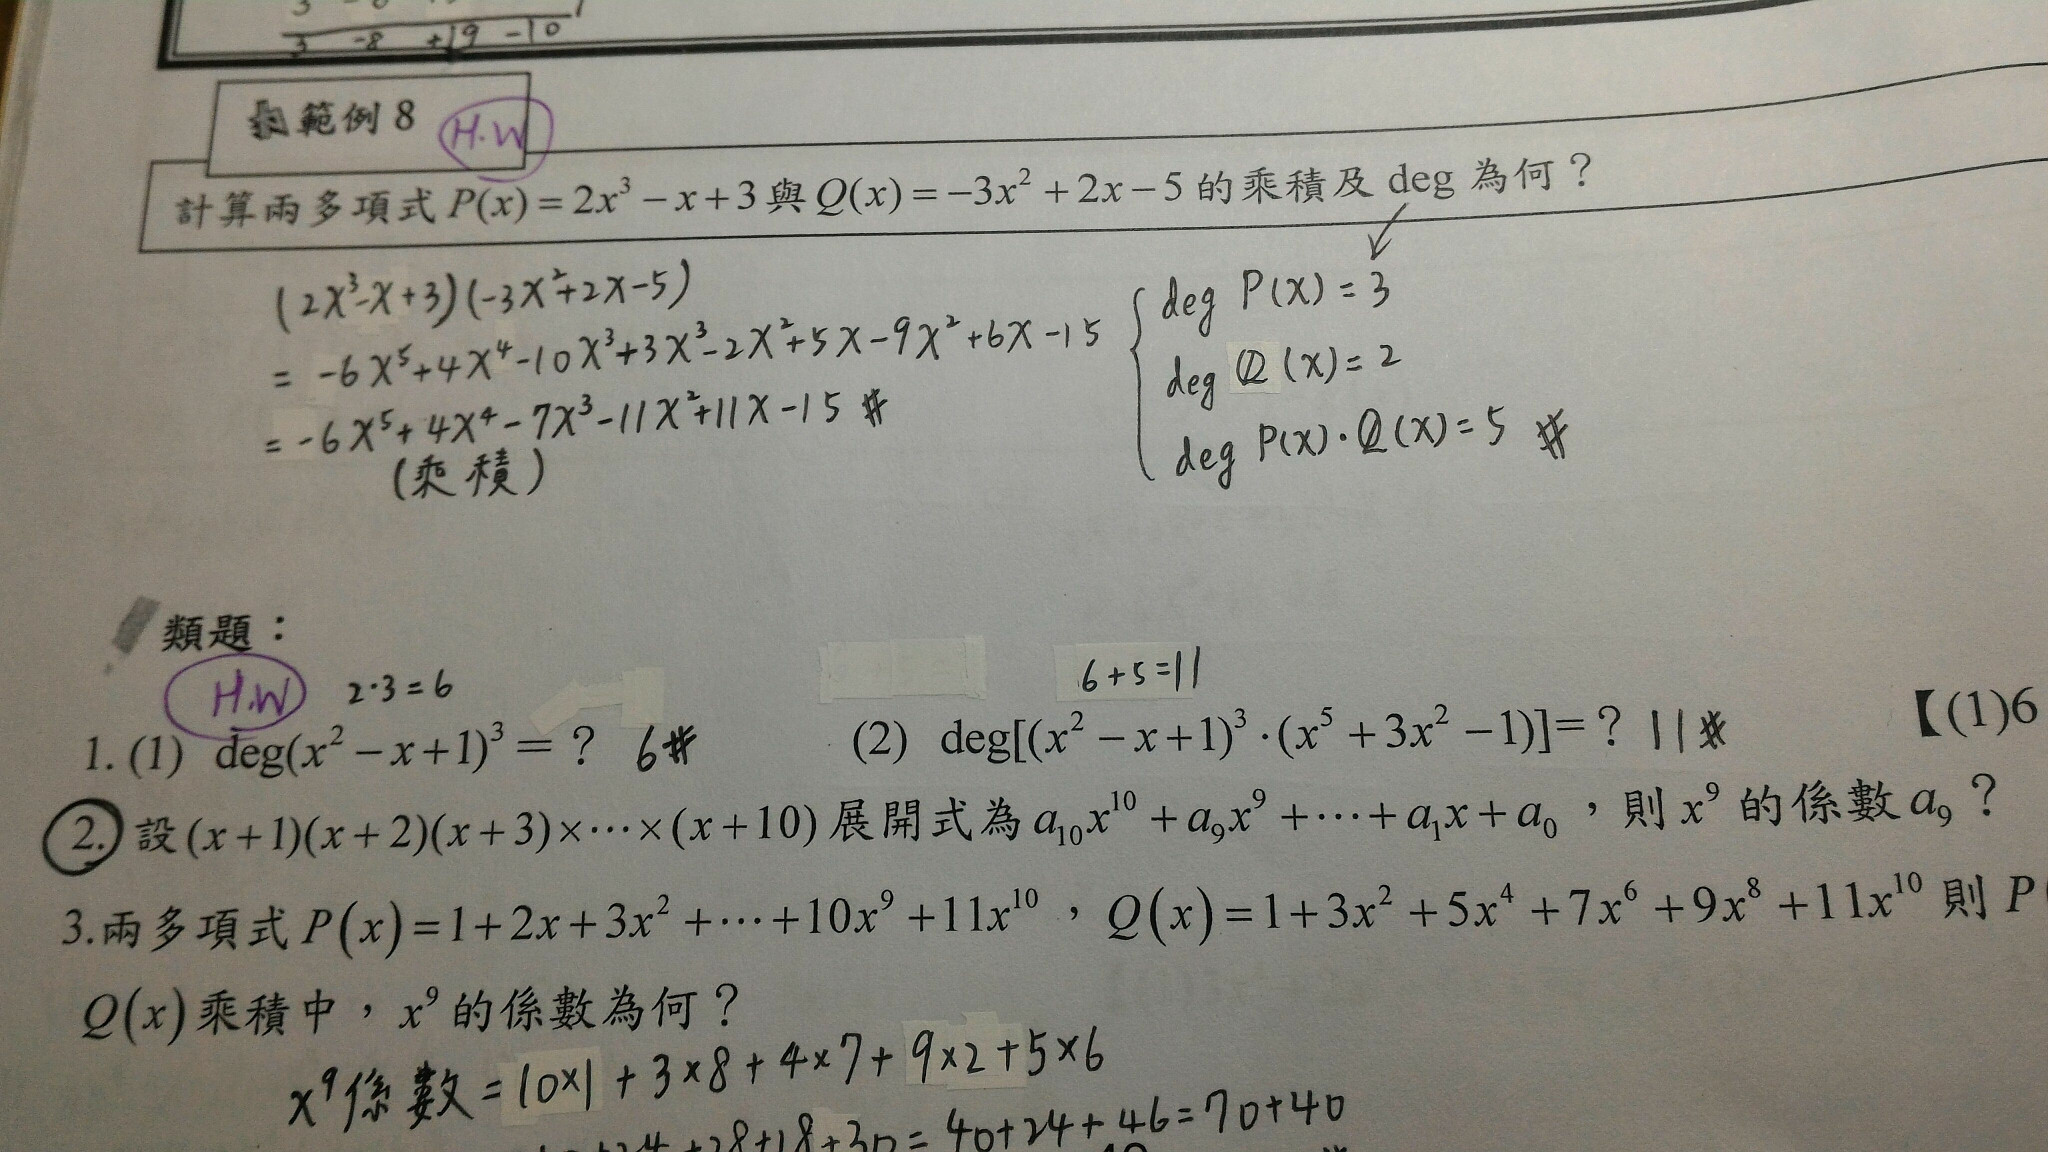 3 -8 +19 -10
範例 8 H.W
計算兩多項式 P(x) = 2x³ − x + 3 與 Q(x) = −3x² + 2x − 5 的乘積及 deg 為何？
(2x³-x+3)(-3x²+2x-5)
= -6x⁵+4x⁴-10x³+3x³-2x²+5x-9x²+6x-15
= -6x⁵+4x⁴-7x³-11x²+11x-15 #
(乘積)
deg P(x) = 3
deg Q(x) = 2
deg P(x)·Q(x) = 5 #
類題：
H.W 2·3=6
6+5=11
1. (1) deg(x² − x + 1)³ = ？ 6# (2) deg[(x² − x + 1)³ · (x⁵ + 3x² − 1)] = ？ 11# 【(1)6
2. 設 (x+1)(x+2)(x+3)×⋯×(x+10) 展開式為 a₁₀x¹⁰ + a₉x⁹ + ⋯ + a₁x + a₀，則 x⁹ 的係數 a₉？
3.兩多項式 P(x) = 1 + 2x + 3x² + ⋯ + 10x⁹ + 11x¹⁰，Q(x) = 1 + 3x² + 5x⁴ + 7x⁶ + 9x⁸ + 11x¹⁰ 則 P
Q(x) 乘積中，x⁹ 的係數為何？
x⁹係數 = 10×1 + 3×8 + 4×7 + 9×2 + 5×6
+24+28+18+30 = 40+24+46 = 70+40